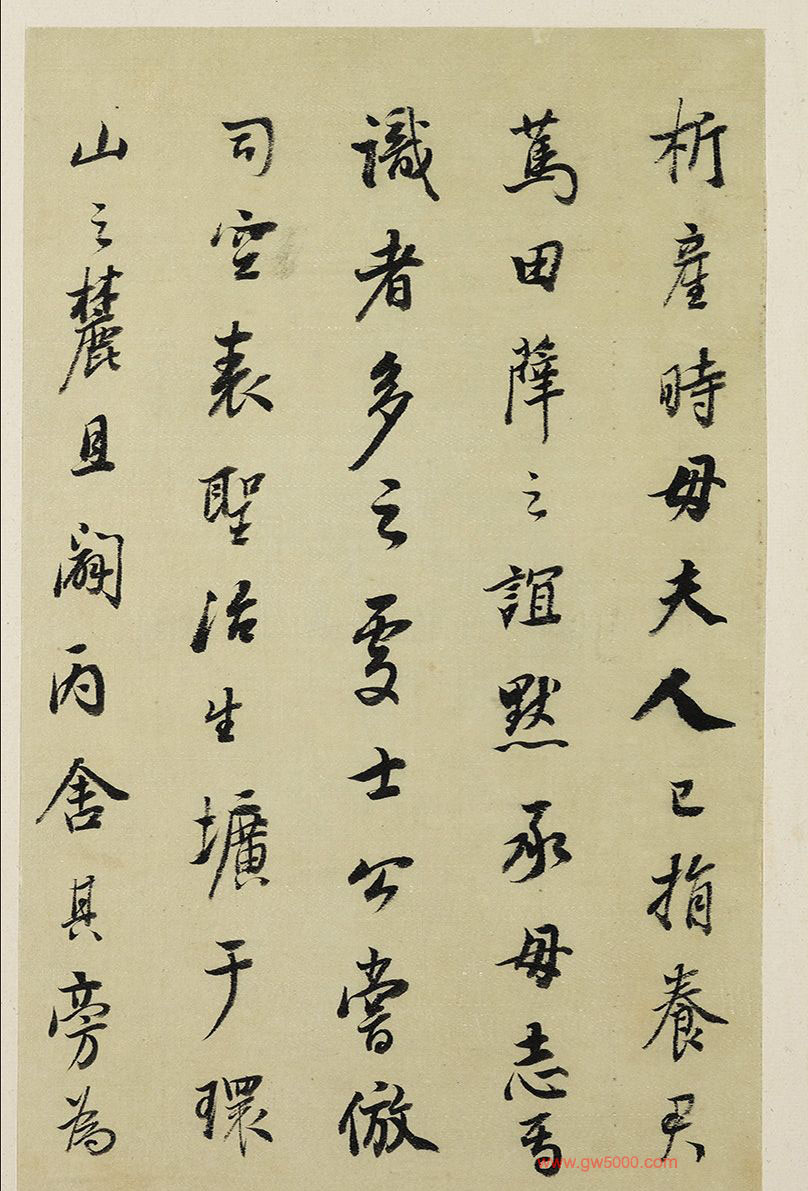 析產時母夫人已捐養君
篤田薛之誼默承母志焉
識者多之處士公嘗倣
司空表聖治生壙于環
山之麓且闢丙舍其旁為
www.gw5000.com